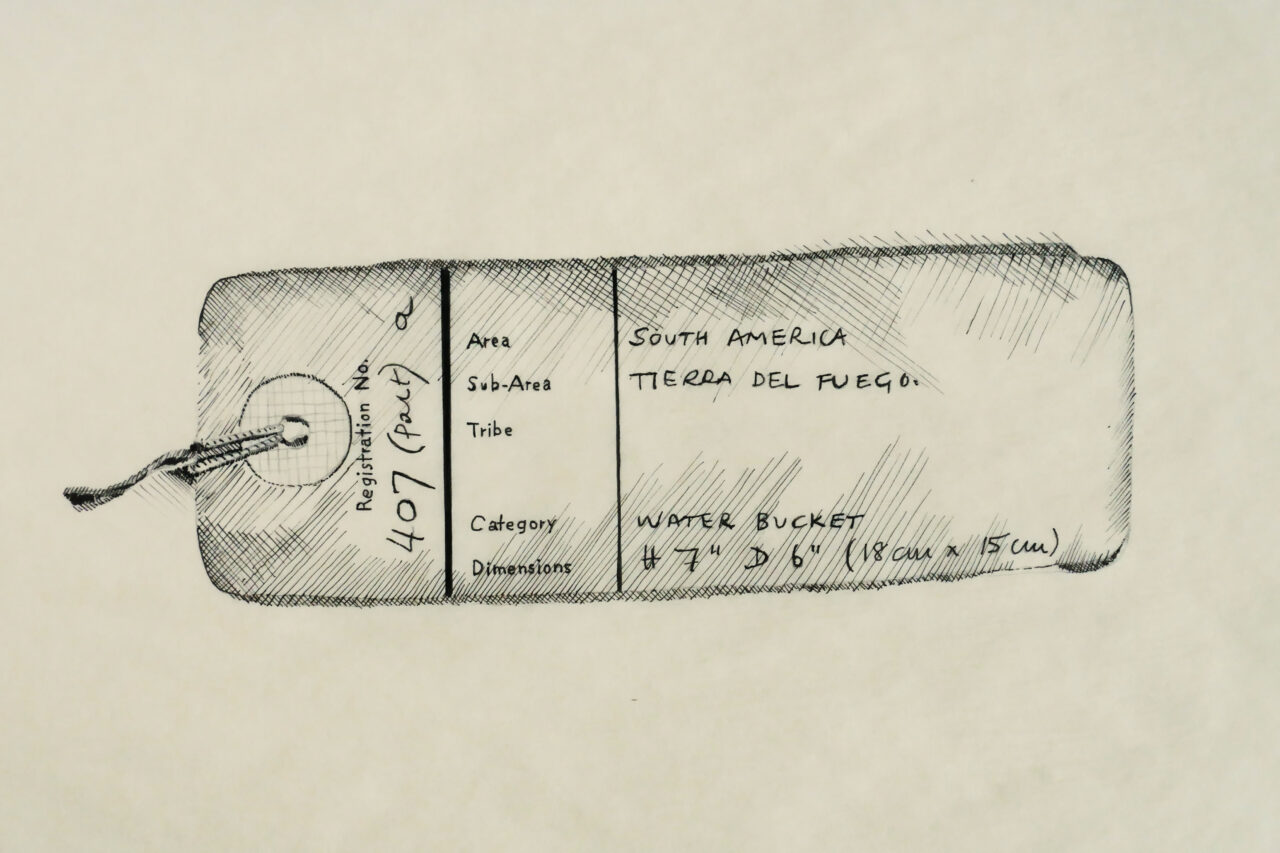 Registration No.
407 (Part) a
Area SOUTH AMERICA
Sub-Area TIERRA DEL FUEGO.
Tribe
Category WATER BUCKET
Dimensions H 7" D 6" (18cm x 15cm)